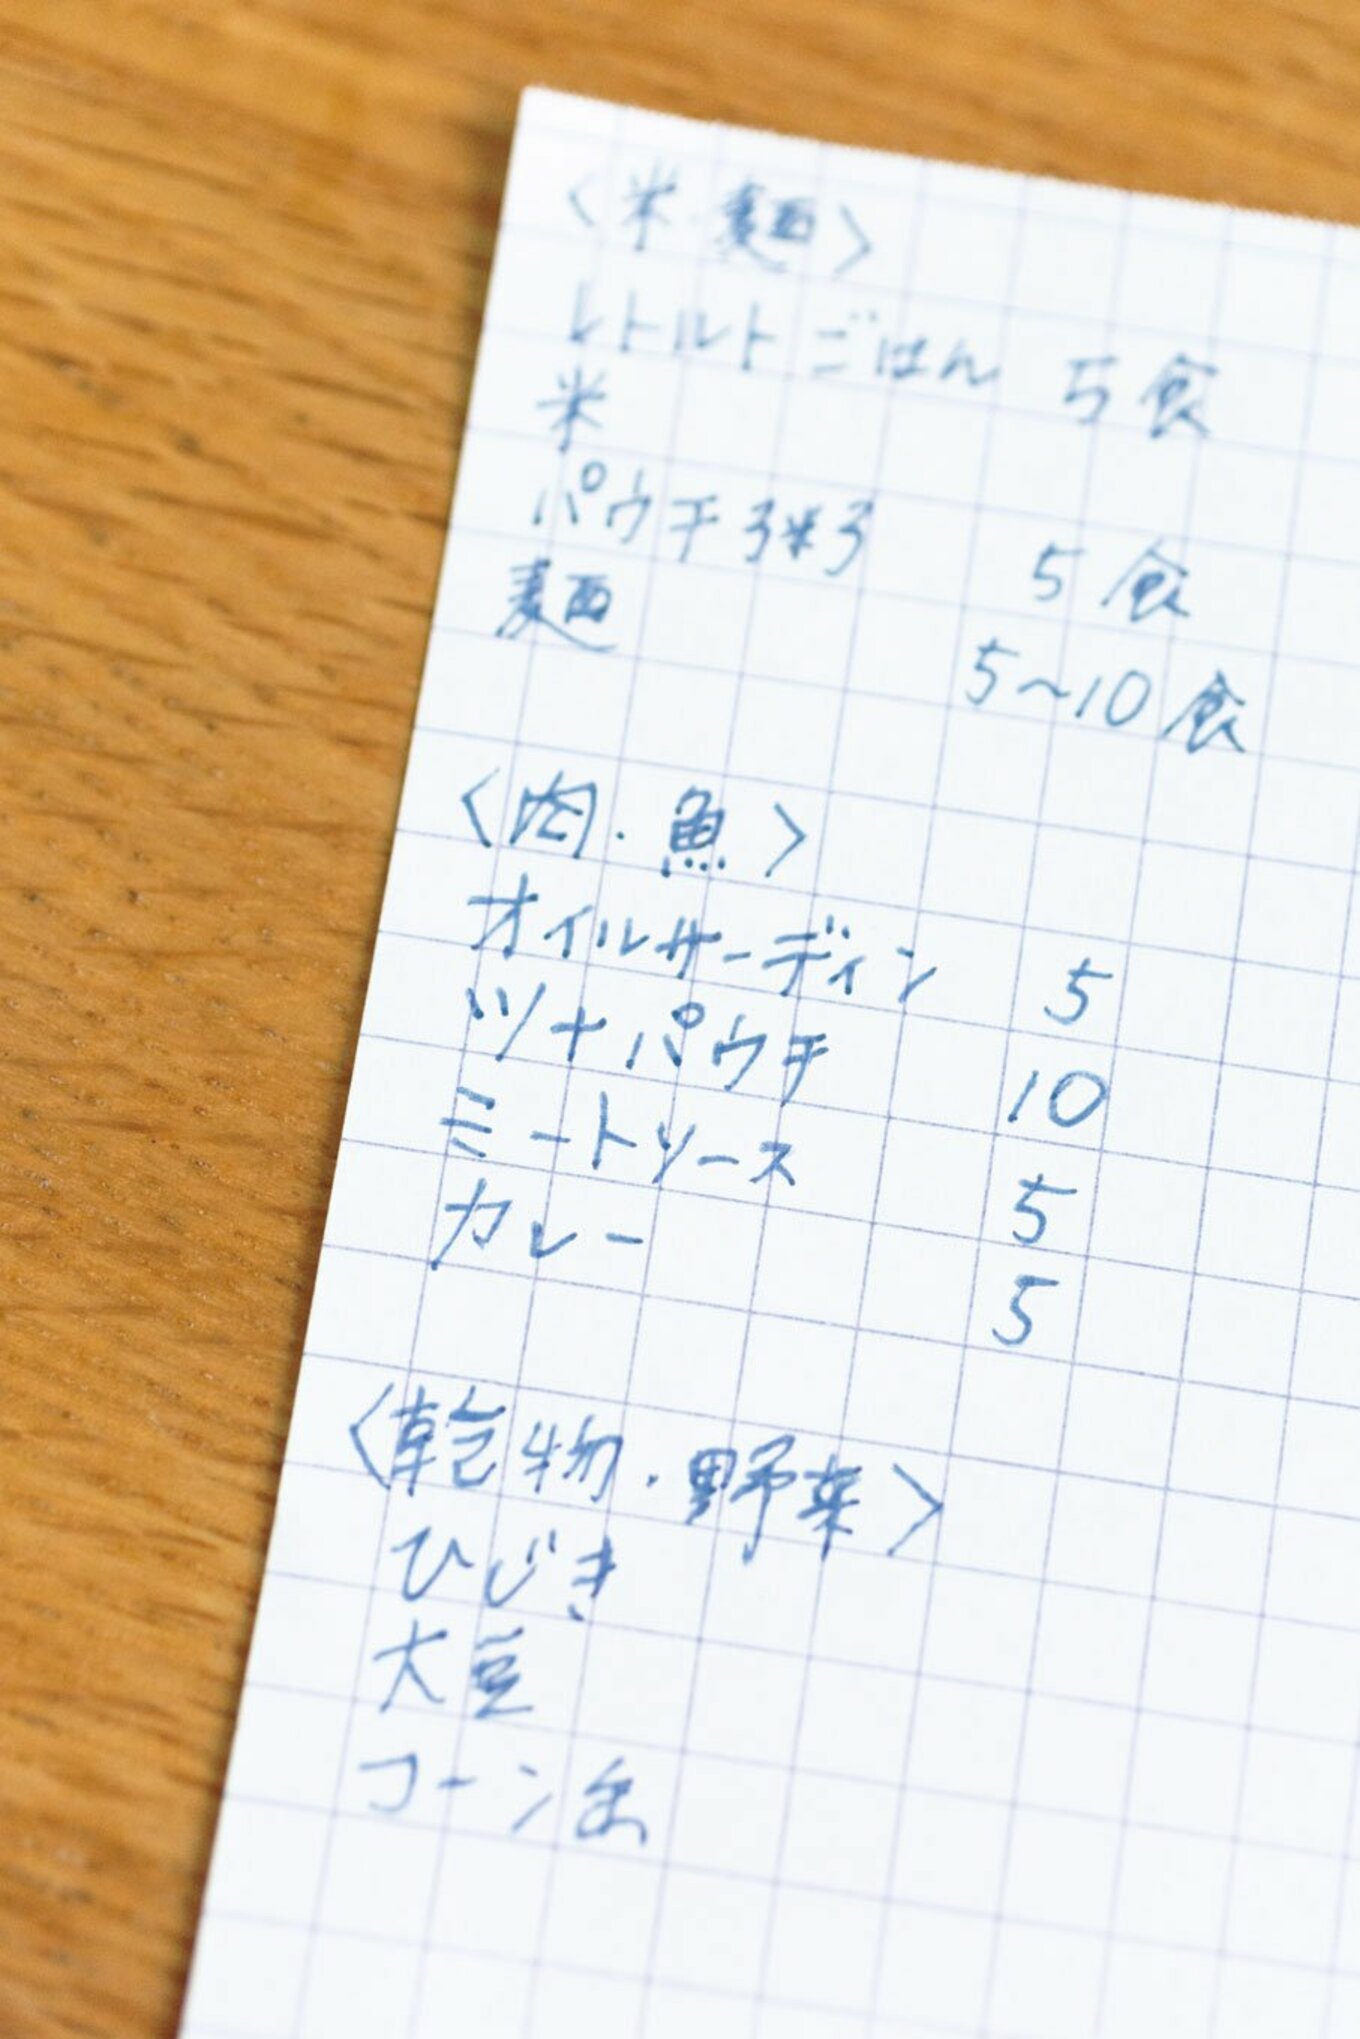 〈米・麺〉
レトルトごはん 5食
米
パウチ粥 5食
麺 5~10食
〈肉・魚〉
オイルサーディン 5
ツナパウチ 10
ミートソース 5
カレー 5
〈乾物・野菜〉
ひじき
大豆
コーン缶